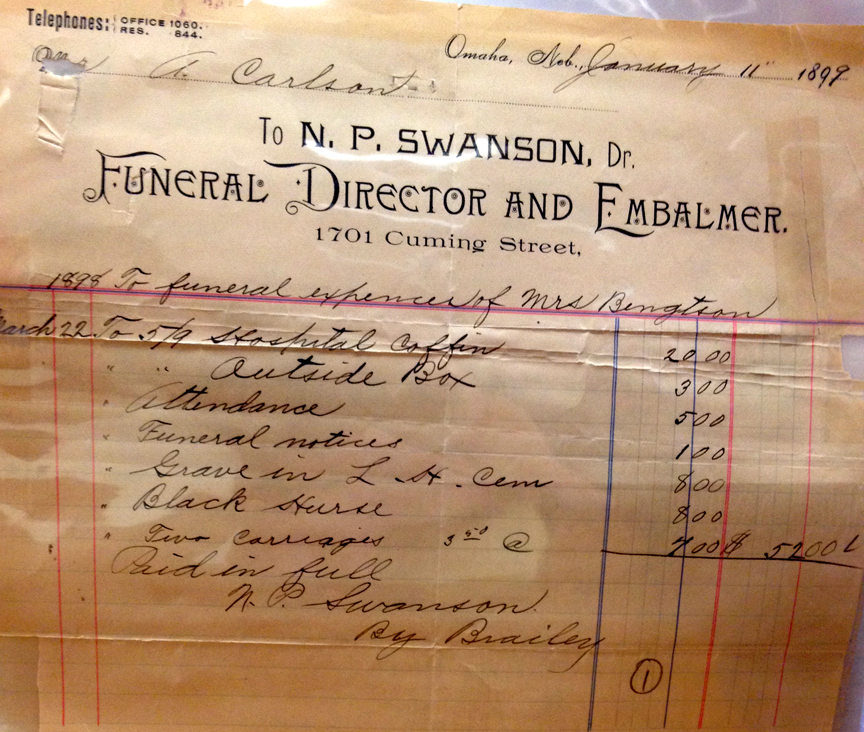 Telephones: OFFICE 1060.
RES. 844.
Omaha, Neb., January 11" 1899
A. Carlson
To N. P. SWANSON, Dr.
FUNERAL DIRECTOR AND EMBALMER.
1701 Cuming Street,
1898 To funeral expences of Mrs Bengtson
March 22. To 5/9 Hospital Coffin 20 00
" " Outside Box 3 00
" Attendance 5 00
" Funeral notices 1 00
" Grave in L. H. Cem 8 00
" Black Hurse 8 00
" Two Carriages 3 50 @ 7 00 $ 52 00
Paid in full
N. P. Swanson.
By Brailey
1